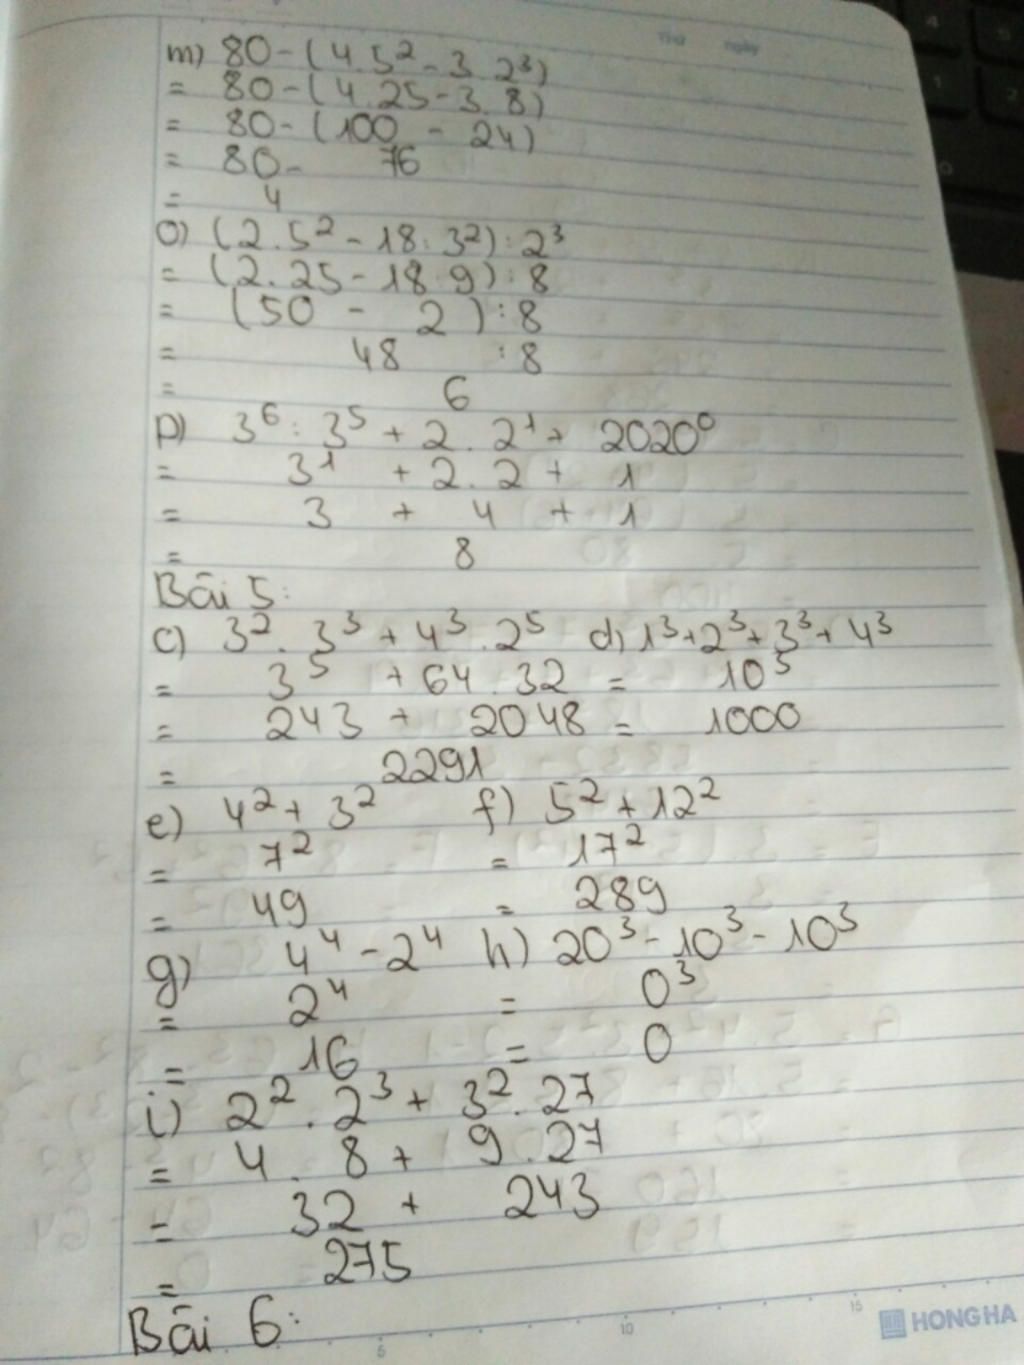 Thứ ngày
m) 80 - (4.5² - 3.2³)
= 80 - (4.25 - 3.8)
= 80 - (100 - 24)
= 80 - 76
= 4
o) (2.5² - 18:3²):2³
= (2.25 - 18:9):8
= (50 - 2):8
= 48 :8
= 6
p) 3⁶:3⁵ + 2.2¹ + 2020⁰
= 3¹ + 2.2 + 1
= 3 + 4 + 1
= 8
Bài 5:
c) 3².3³ + 4³.2⁵ d) 1³+2³+3³+4³
= 3⁵ + 64.32 = 10³
= 243 + 2048 = 1000
= 2291
e) 4² + 3² f) 5² + 12²
= 7² = 17²
= 49 = 289
g) 4⁴ - 2⁴ h) 20³ - 10³ - 10³
= 2⁴ = 0³
= 16 = 0
i) 2².2³ + 3².27
= 4.8 + 9.27
= 32 + 243
= 275
Bài 6:
5 10 15 HONG HA